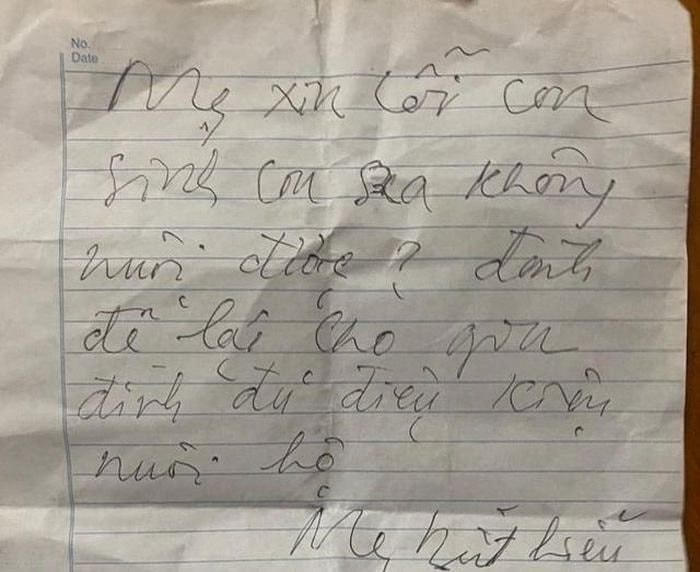 No.
Date
Mẹ xin lỗi con
sinh con ra không
nuôi được? đành
để lại cho gia
đình đủ điều kiện
nuôi hộ
Mẹ bất hiếu